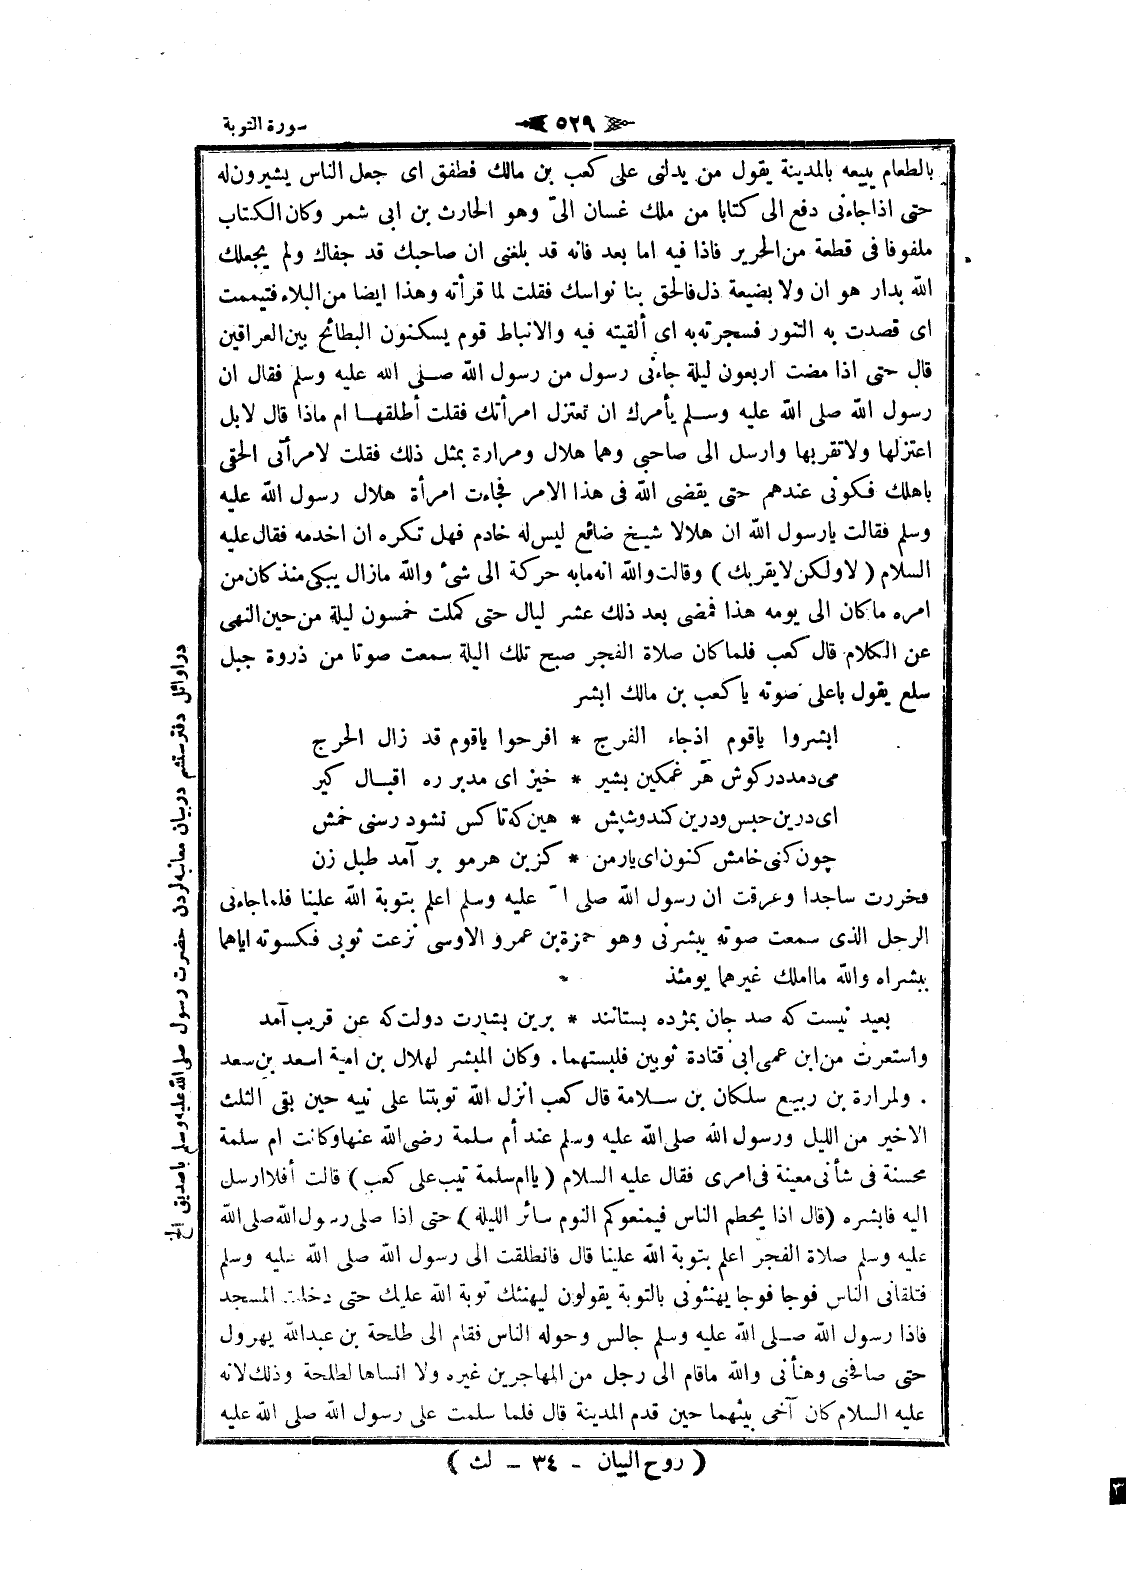 سورة التوبة
٥٢٩
بالطعام يبيعه بالمدينة يقول من يدلنى على كعب بن مالك فطفق اى جعل الناس يشيرون له
حتى اذا جاءنى دفع الى كتابا من ملك غسان الىّ وهو الحارث بن ابى شمر وكان الكتاب
ملفوفا فى قطعة من الحرير فاذا فيه اما بعد فانه قد بلغنى ان صاحبك قد جفاك ولم يجعلك
الله بدار هو ان ولا بضيعة ذل فالحق بنا نواسك فقلت لما قرأته وهذا ايضا من البلاء فتيممت
اى قصدت به التنور فسجرته به اى ألقيته فيه والانباط قوم يسكنون البطائح بين العراقين
قال حتى اذا مضت اربعون ليلة جاءنى رسول من رسول الله صلى الله عليه وسلم فقال ان
رسول الله صلى الله عليه وسلم يأمرك ان تعتزل امرأتك فقلت أطلقها ام ماذا قال لا بل
اعتزلها ولا تقربها وارسل الى صاحبى وهما هلال ومرارة بمثل ذلك فقلت لامرأتى الحقى
باهلك فكونى عندهم حتى يقضى الله فى هذا الامر فجاءت امرأة هلال رسول الله عليه
وسلم فقالت يا رسول الله ان هلالا شيخ ضائع ليس له خادم فهل تكره ان اخدمه فقال عليه
السلام ( لا ولكن لا يقربك ) وقالت والله انه ما به حركة الى شئ والله ما زال يبكى منذ كان من
امره ما كان الى يومه هذا فمضى بعد ذلك عشر ليال حتى كملت خمسون ليلة من حين النهى
عن الكلام قال كعب فلما كان صلاة الفجر صبح تلك اليلة سمعت صوتا من ذروة جبل
سلع يقول باعلى صوته يا كعب بن مالك ابشر
ابشروا ياقوم اذجاء الفرج * افرحوا ياقوم قد زال الحرج
مى دمد در كوش هر غمكين بشير * خيز اى مدبر ره اقبال كير
اى درين حبس ودرين كند وشپش * هين كه تا كس نشود رستى خمش
چون كنى خامش كنون اى يار من * كز بن هر مو بر آمد طبل زن
فخررت ساجدا وعرفت ان رسول الله صلى الله عليه وسلم اعلم بتوبة الله علينا فلما جاءنى
الرجل الذى سمعت صوته يبشرنى وهو حمزة بن عمرو الاوسى نزعت ثوبى فكسوته اياهما
ببشراه والله ما املك غيرهما يومئذ
بعيد نيست كه صد جان بمژده بستانند * برين بشارت دولت كه عن قريب آمد
واستعرت من ابن عمى ابى قتادة ثوبين فلبستهما . وكان المبشر لهلال بن امية اسعد بن سعد
. ولمرارة بن ربيع سلكان بن سلامة قال كعب انزل الله توبتنا على نبيه حين بقى الثلث
الاخير من الليل ورسول الله صلى الله عليه وسلم عند أم سلمة رضى الله عنها وكانت ام سلمة
محسنة فى شأنى معينة فى امرى فقال عليه السلام ( يا ام سلمة تيب على كعب ) قالت أفلا ارسل
اليه فابشره ( قال اذا يحطم الناس فيمنعوكم النوم سائر الليلة ) حتى اذا صلى رسول الله صلى الله
عليه وسلم صلاة الفجر اعلم بتوبة الله علينا قال فانطلقت الى رسول الله صلى الله عليه وسلم
فتلقانى الناس فوجا فوجا يهنئونى بالتوبة يقولون ليهنئك توبة الله عليك حتى دخلت المسجد
فاذا رسول الله صلى الله عليه وسلم جالس وحوله الناس فقام الى طلحة بن عبدالله يهرول
حتى صافحنى وهنأنى والله ما قام الى رجل من المهاجرين غيره ولا انساها لطلحة وذلك لانه
عليه السلام كان آخى بينهما حين قدم المدينة قال فلما سلمت على رسول الله صلى الله عليه
( روح البيان - ٣٤ - لث )
در اوائل دفتر ششم در بيان معاتبه كردن حضرت رسول صلى الله عليه وسلم با صديق الخ
٣